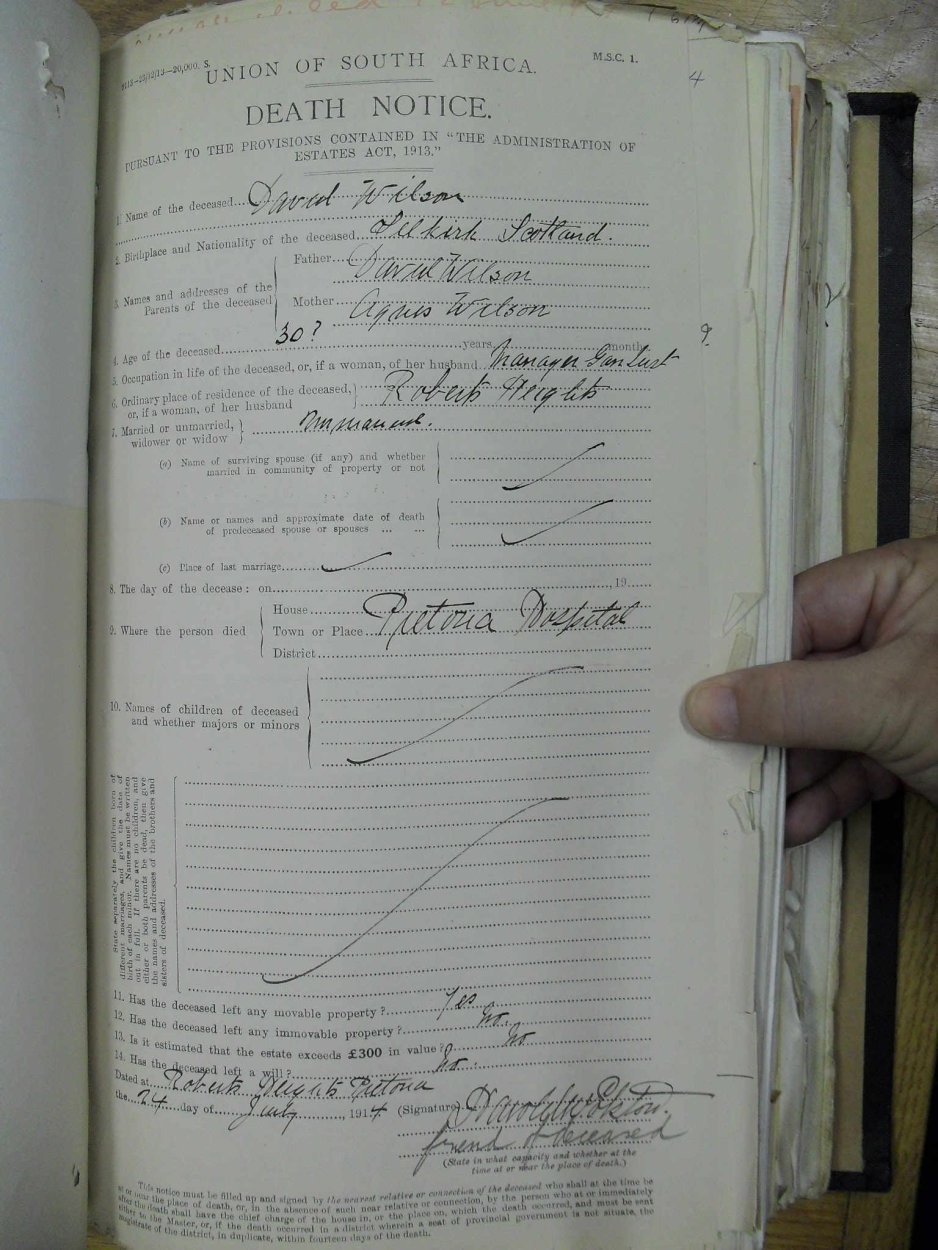 UNION OF SOUTH AFRICA.
M.S.C. 1.
DEATH NOTICE.
PURSUANT TO THE PROVISIONS CONTAINED IN "THE ADMINISTRATION OF
ESTATES ACT, 1913."
1. Name of the deceased David Wilson
2. Birthplace and Nationality of the deceased Selkirk Scotland.
3. Names and addresses of the Parents of the deceased
Father David Wilson
Mother Agnes Wilson
4. Age of the deceased 30? years months
5. Occupation in life of the deceased, or, if a woman, of her husband Manager
6. Ordinary place of residence of the deceased, or, if a woman, of her husband Roberts Heights
7. Married or unmarried, widower or widow Unmarried.
(a) Name of surviving spouse (if any) and whether
married in community of property or not
(b) Name or names and approximate date of death
of predeceased spouse or spouses ... ...
(c) Place of last marriage
8. The day of the decease: on 19
9. Where the person died
House
Town or Place Pretoria Hospital
District
10. Names of children of deceased
and whether majors or minors
State separately the children born of
different marriages, and give the date of
birth of each minor. Names must be written
out in full. If there are no children, and
either or both parents be dead, then give
the names and addresses of the brothers and
sisters of deceased.
11. Has the deceased left any movable property? Yes
12. Has the deceased left any immovable property? No.
13. Is it estimated that the estate exceeds £300 in value? No
14. Has the deceased left a will? No.
Dated at Roberts Heights Pretoria
the 24 day of July 1914 (Signature)
friend of deceased
(State in what capacity and whether at the
time at or near the place of death.)
This notice must be filled up and signed by the nearest relative or connection of the deceased who shall at the time be
at or near the place of death, or, in the absence of such near relative or connection, by the person who at or immediately
after the death shall have the chief charge of the house in, or the place on, which the death occurred, and must be sent
either to the Master, or, if the death occurred in a district wherein a seat of provincial government is not situate, the
magistrate of the district, in duplicate, within fourteen days of the death.